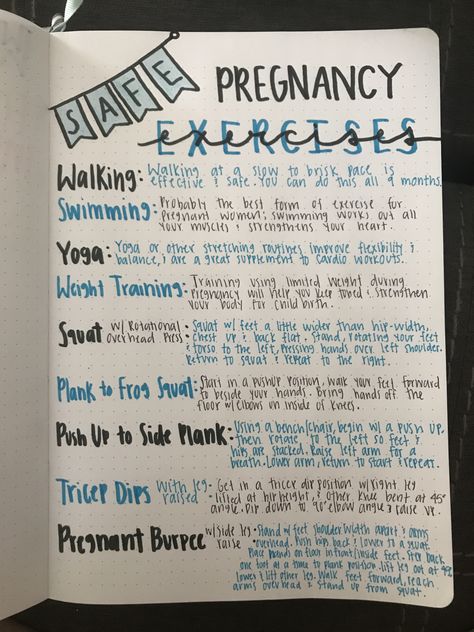 SAFE PREGNANCY
EXERCISES
Walking: Walking at a slow to brisk pace is
effective & safe. You can do this all 9 months.
Swimming: Probably the best form of exercise for
pregnant women; swimming works out all
your muscles & strengthens your heart.
Yoga: Yoga or other stretching routines improve flexibility &
balance, & are a great supplement to cardio workouts.
Weight Training: Training using limited weight during
pregnancy will help you keep toned & strengthen
your body for child birth.
Squat w/ Rotational Overhead Press: Squat w/ feet a little wider than hip-width,
chest up & back flat. Stand, rotating your feet
& torso to the left, pressing hands over left shoulder.
Return to squat & repeat to the right.
Plank to Frog Squat: Start in a pushup position, walk your feet forward
to beside your hands. Bring hands off the
floor w/ elbows on inside of knees.
Push Up to Side Plank: Using a bench/chair, begin w/ a push up,
then rotate to the left so feet &
hips are stacked. Raise left arm for a
breath. Lower arm, return to start & repeat.
Tricep Dips with leg raised: Get in a tricep dip position w/ right leg
lifted at hip height, & other knee bent at 45°
angle. Dip down to 90° elbow angle & raise up.
Pregnant Burpee w/ side leg raise: Stand w/ feet shoulder width apart & arms
overhead. Push hips back & lower to a squat.
Place hands on floor in front/inside feet. Step back
one foot at a time to plank position. Lift leg out at
lower & lift other leg. Walk feet forward, reach
arms overhead & stand up from squat.